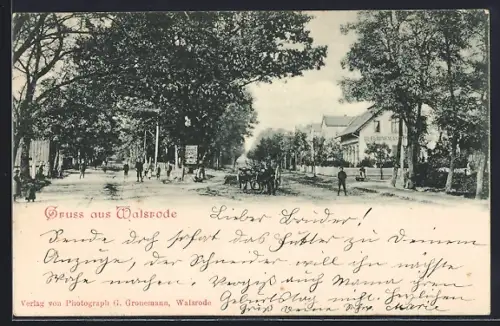 Gruss aus Walsrode
Lieber Bruder!
Sende doch sofort das Futter zu Deinem
Anzuge, der Schneider will ihn nächste
Woche machen. Vergeß auch Mama ihren
Geburtstag nicht. herzlichen
Gruß Deine Marie
Verlag von Photograph G. Gronemann, Walsrode